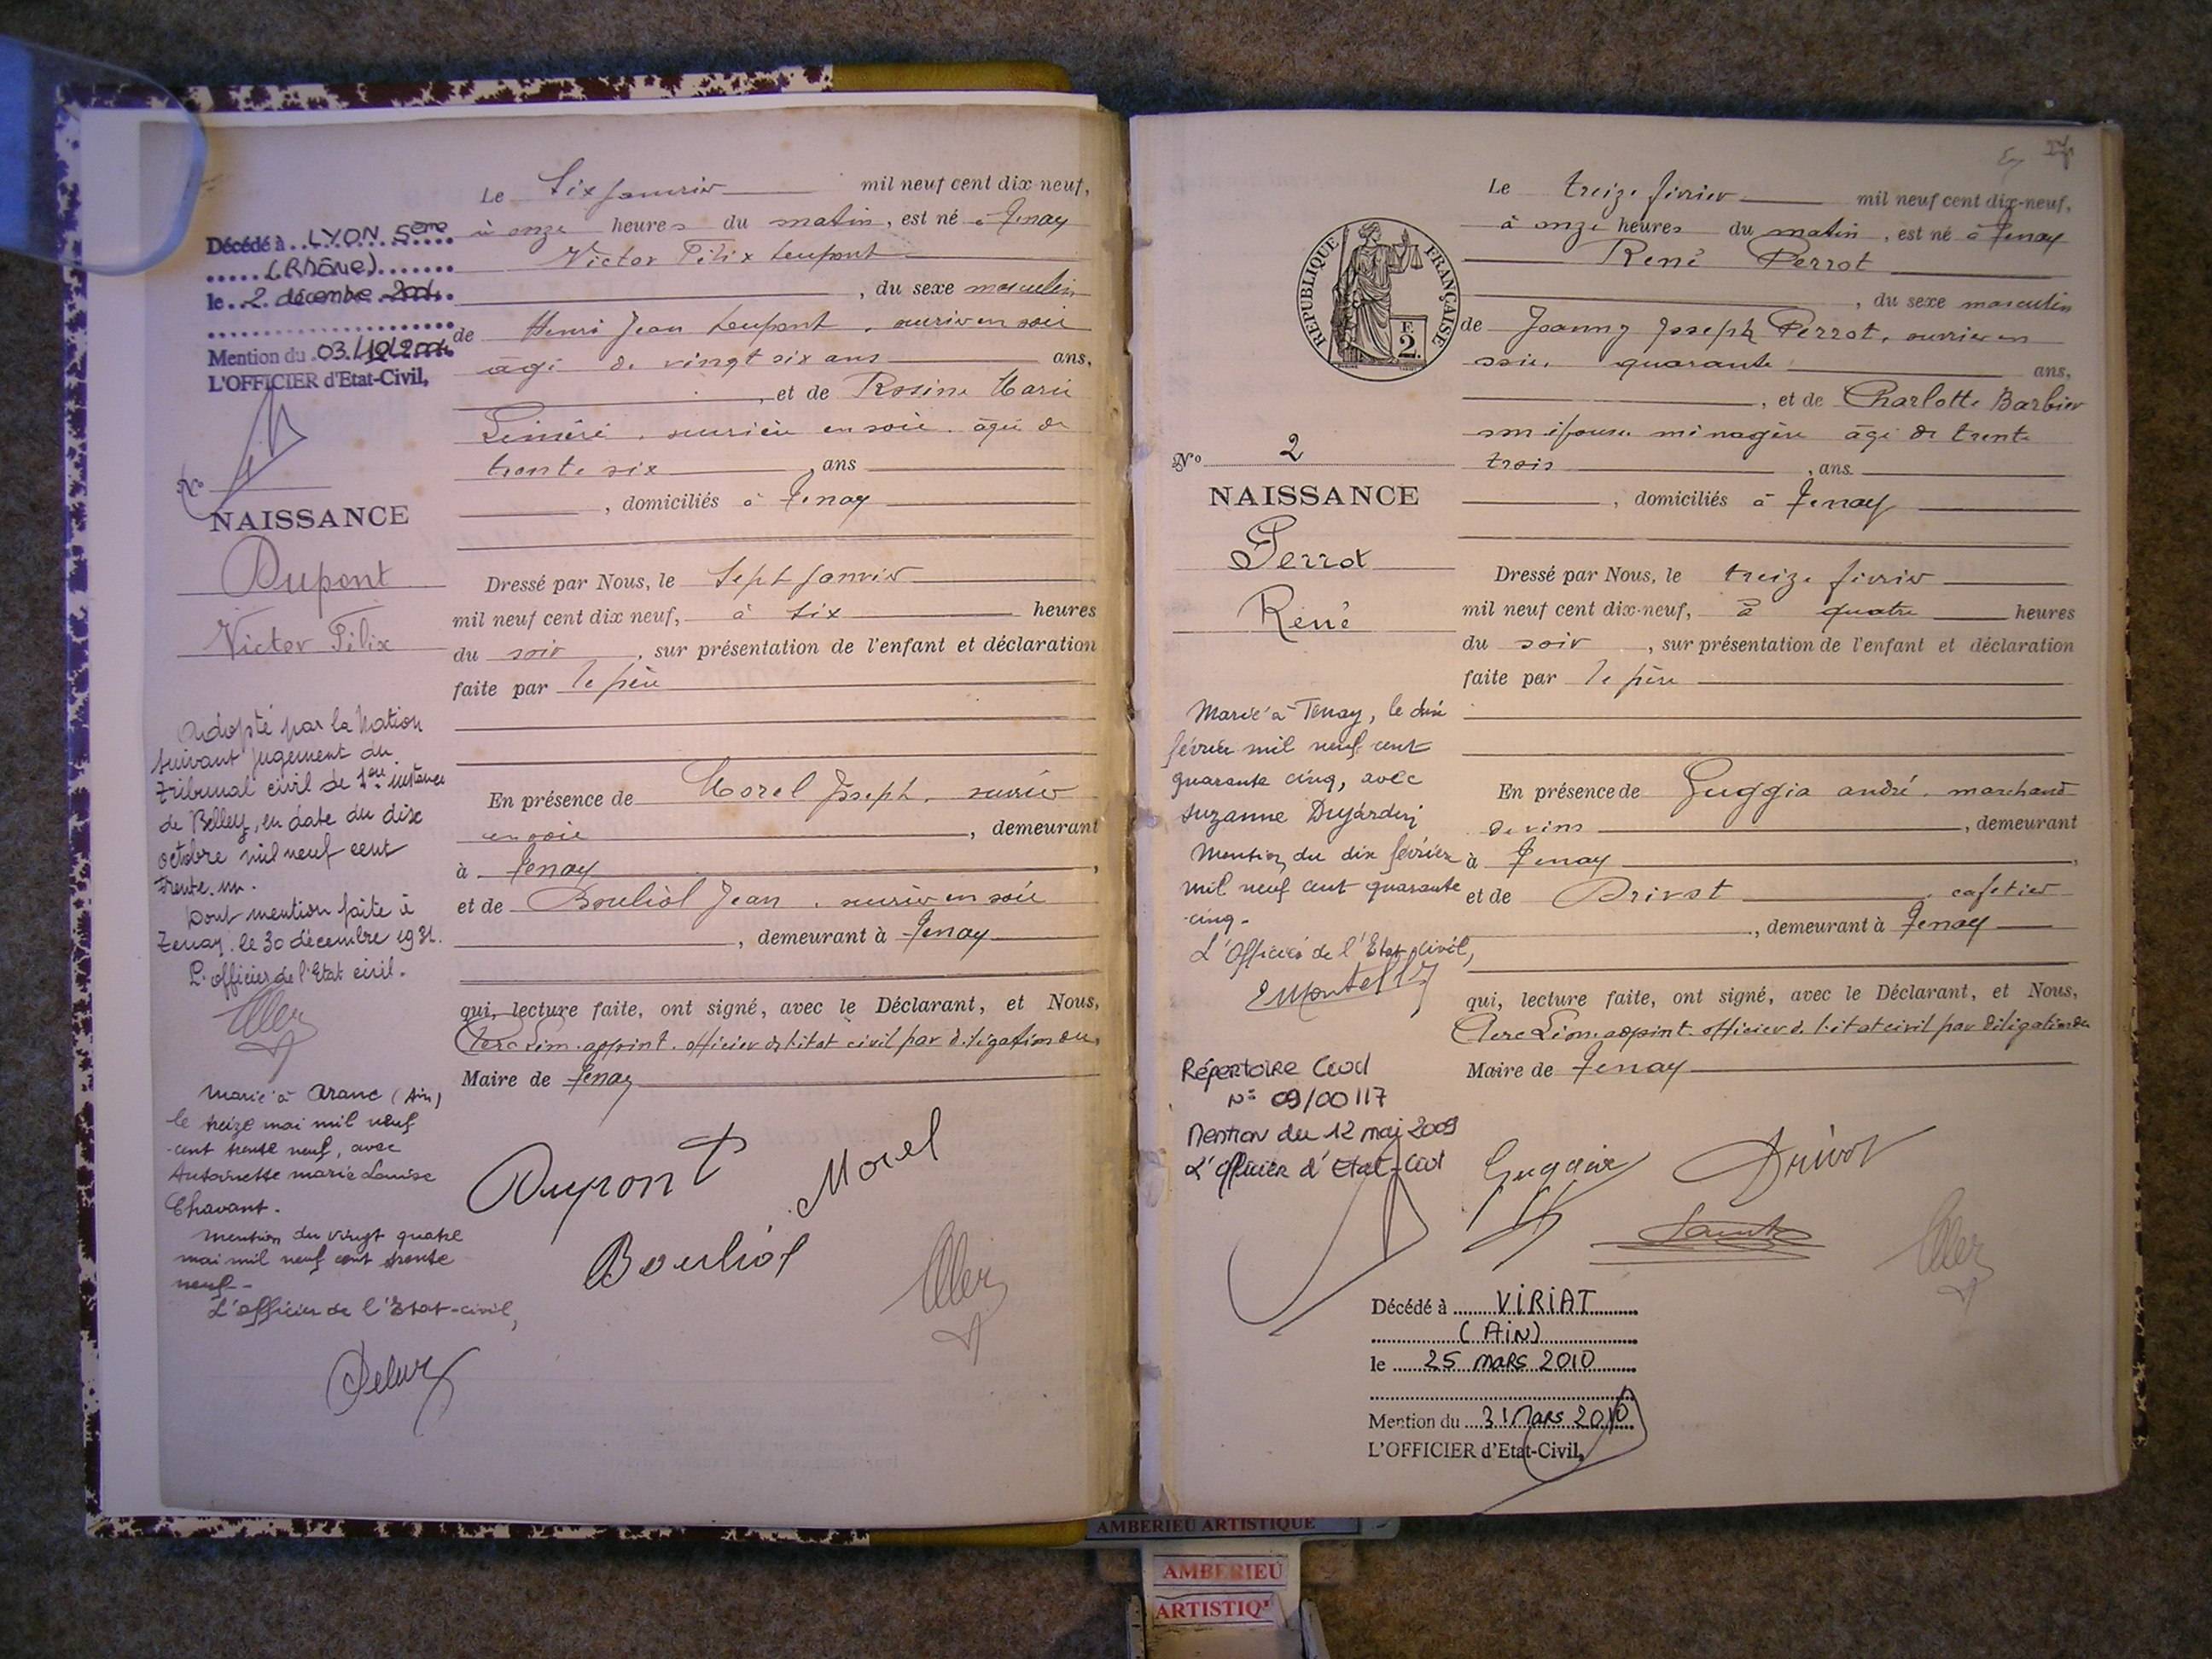 Le Six Janvier mil neuf cent dix-neuf,
à onze heures du matin, est né à Tenay
Victor Félix Dupont
, du sexe masculin
de Henri Jean Dupont, ouvrier en soie
âgé de vingt six ans ans,
, et de Rosine Marie
ouvrière en soie, âgée de
trente six , ans
, domiciliés à Tenay
Dressé par Nous, le Sept Janvier
mil neuf cent dix neuf, à six heures
du soir , sur présentation de l'enfant et déclaration
faite par le père
En présence de Morel Joseph, ouvrier
en soie , demeurant
à Tenay ,
et de Bouliol Jean, ouvrier en soie
, demeurant à Tenay
qui, lecture faite, ont signé, avec le Déclarant, et Nous,
Clerc adjoint officier de l'état civil par délégation du
Maire de Tenay
Dupont Morel
Bouliol
Décédé à LYON 5ème
(RHÔNE)
le 2 décembre
Mention du
L'OFFICIER d'Etat-Civil,
No
NAISSANCE
Dupont
Victor Félix
Adopté par la Nation
suivant jugement du
tribunal civil de 1ère instance
de Belley, en date du dix
octobre mil neuf cent
trente-un.
Dont mention faite à
Tenay, le 30 décembre 1931.
L'officier de l'Etat civil.
Marié à Aranc (Ain)
le treize mai mil neuf
-cent trente neuf, avec
Antoinette Marie Louise
Chavant.
Mention du vingt quatre
mai mil neuf cent trente
neuf -
L'officier de l'Etat-civil,
Le treize février mil neuf cent dix-neuf,
à onze heures du matin, est né à Tenay
René Perrot
, du sexe masculin
de Joanny Joseph Perrot, ouvrier en
soie, quarante ans,
, et de Charlotte Barbier
son épouse ménagère âgé de trente
trois , ans
, domiciliés à Tenay
Dressé par Nous, le treize février
mil neuf cent dix-neuf, à quatre heures
du soir , sur présentation de l'enfant et déclaration
faite par le père
En présence de Guggia André, marchand
de vins , demeurant
à Tenay ,
et de Drivot , cafetier
, demeurant à Tenay
qui, lecture faite, ont signé, avec le Déclarant, et Nous,
Clerc Léon adjoint officier de l'état civil par délégation du
Maire de Tenay
Drivot
RÉPUBLIQUE FRANÇAISE
2
No 2
NAISSANCE
Perrot
René
Marié à Tenay, le dix
février mil neuf cent
quarante cinq, avec
Suzanne Dujardin
Mention du dix février
mil neuf cent quarante
-cinq -
L'Officier de l'Etat-civil,
Répertoire Civil
N° 09/00117
Mention du 12 mai 2009
L'Officier d'Etat-Civil
Décédé à VIRIAT
(AIN)
le 25 MARS 2010
Mention du 31 Mars 2010
L'OFFICIER d'Etat-Civil,
AMBERIEU ARTISTIQUE
AMBERIEU
ARTISTIQ